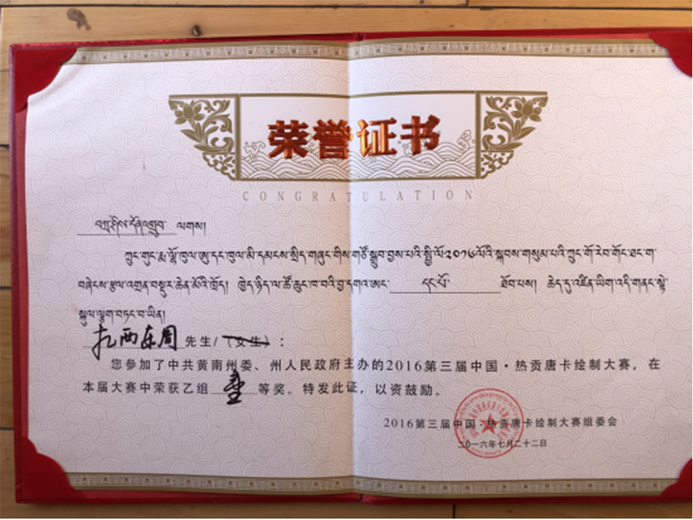 荣誉证书
CONGRATULATION
བཀྲ་ཤིས་དོན་འགྲུབ་ ལགས།
ཀྲུང་གུང་རྨ་ལྷོ་ཁུལ་ཨུ་དང་ཁུལ་མི་དམངས་སྲིད་གཞུང་གིས་གཙོ་སྒྲུབ་བྱས་པའི་སྤྱི་ལོ༢༠༡༦ལོའི་སྐབས་གསུམ་པའི་ཀྲུང་གོ་རེབ་གོང་ཐང་ག་
བཞེངས་རྩལ་འགྲན་བསྡུར་ཆེན་མོའི་ཁྲོད། ཁྱེད་ཉིད་ལ་ཚོ་ཆུང་ཁ་བའི་བྱ་དགའ་ཨང་ དང་པོ་ ཐོབ་པས། ཆེད་དུ་འཛིན་ཡིག་འདི་གནང་སྟེ་
སྐུལ་ལྕག་བཏང་བ་ཡིན།
扎西东周 先生/(女士):
您参加了中共黄南州委、州人民政府主办的2016第三届中国·热贡唐卡绘制大赛,在
本届大赛中荣获乙组 壹 等奖。特发此证,以资鼓励。
2016第三届中国·热贡唐卡绘制大赛组委会
二〇一六年七月二十二日